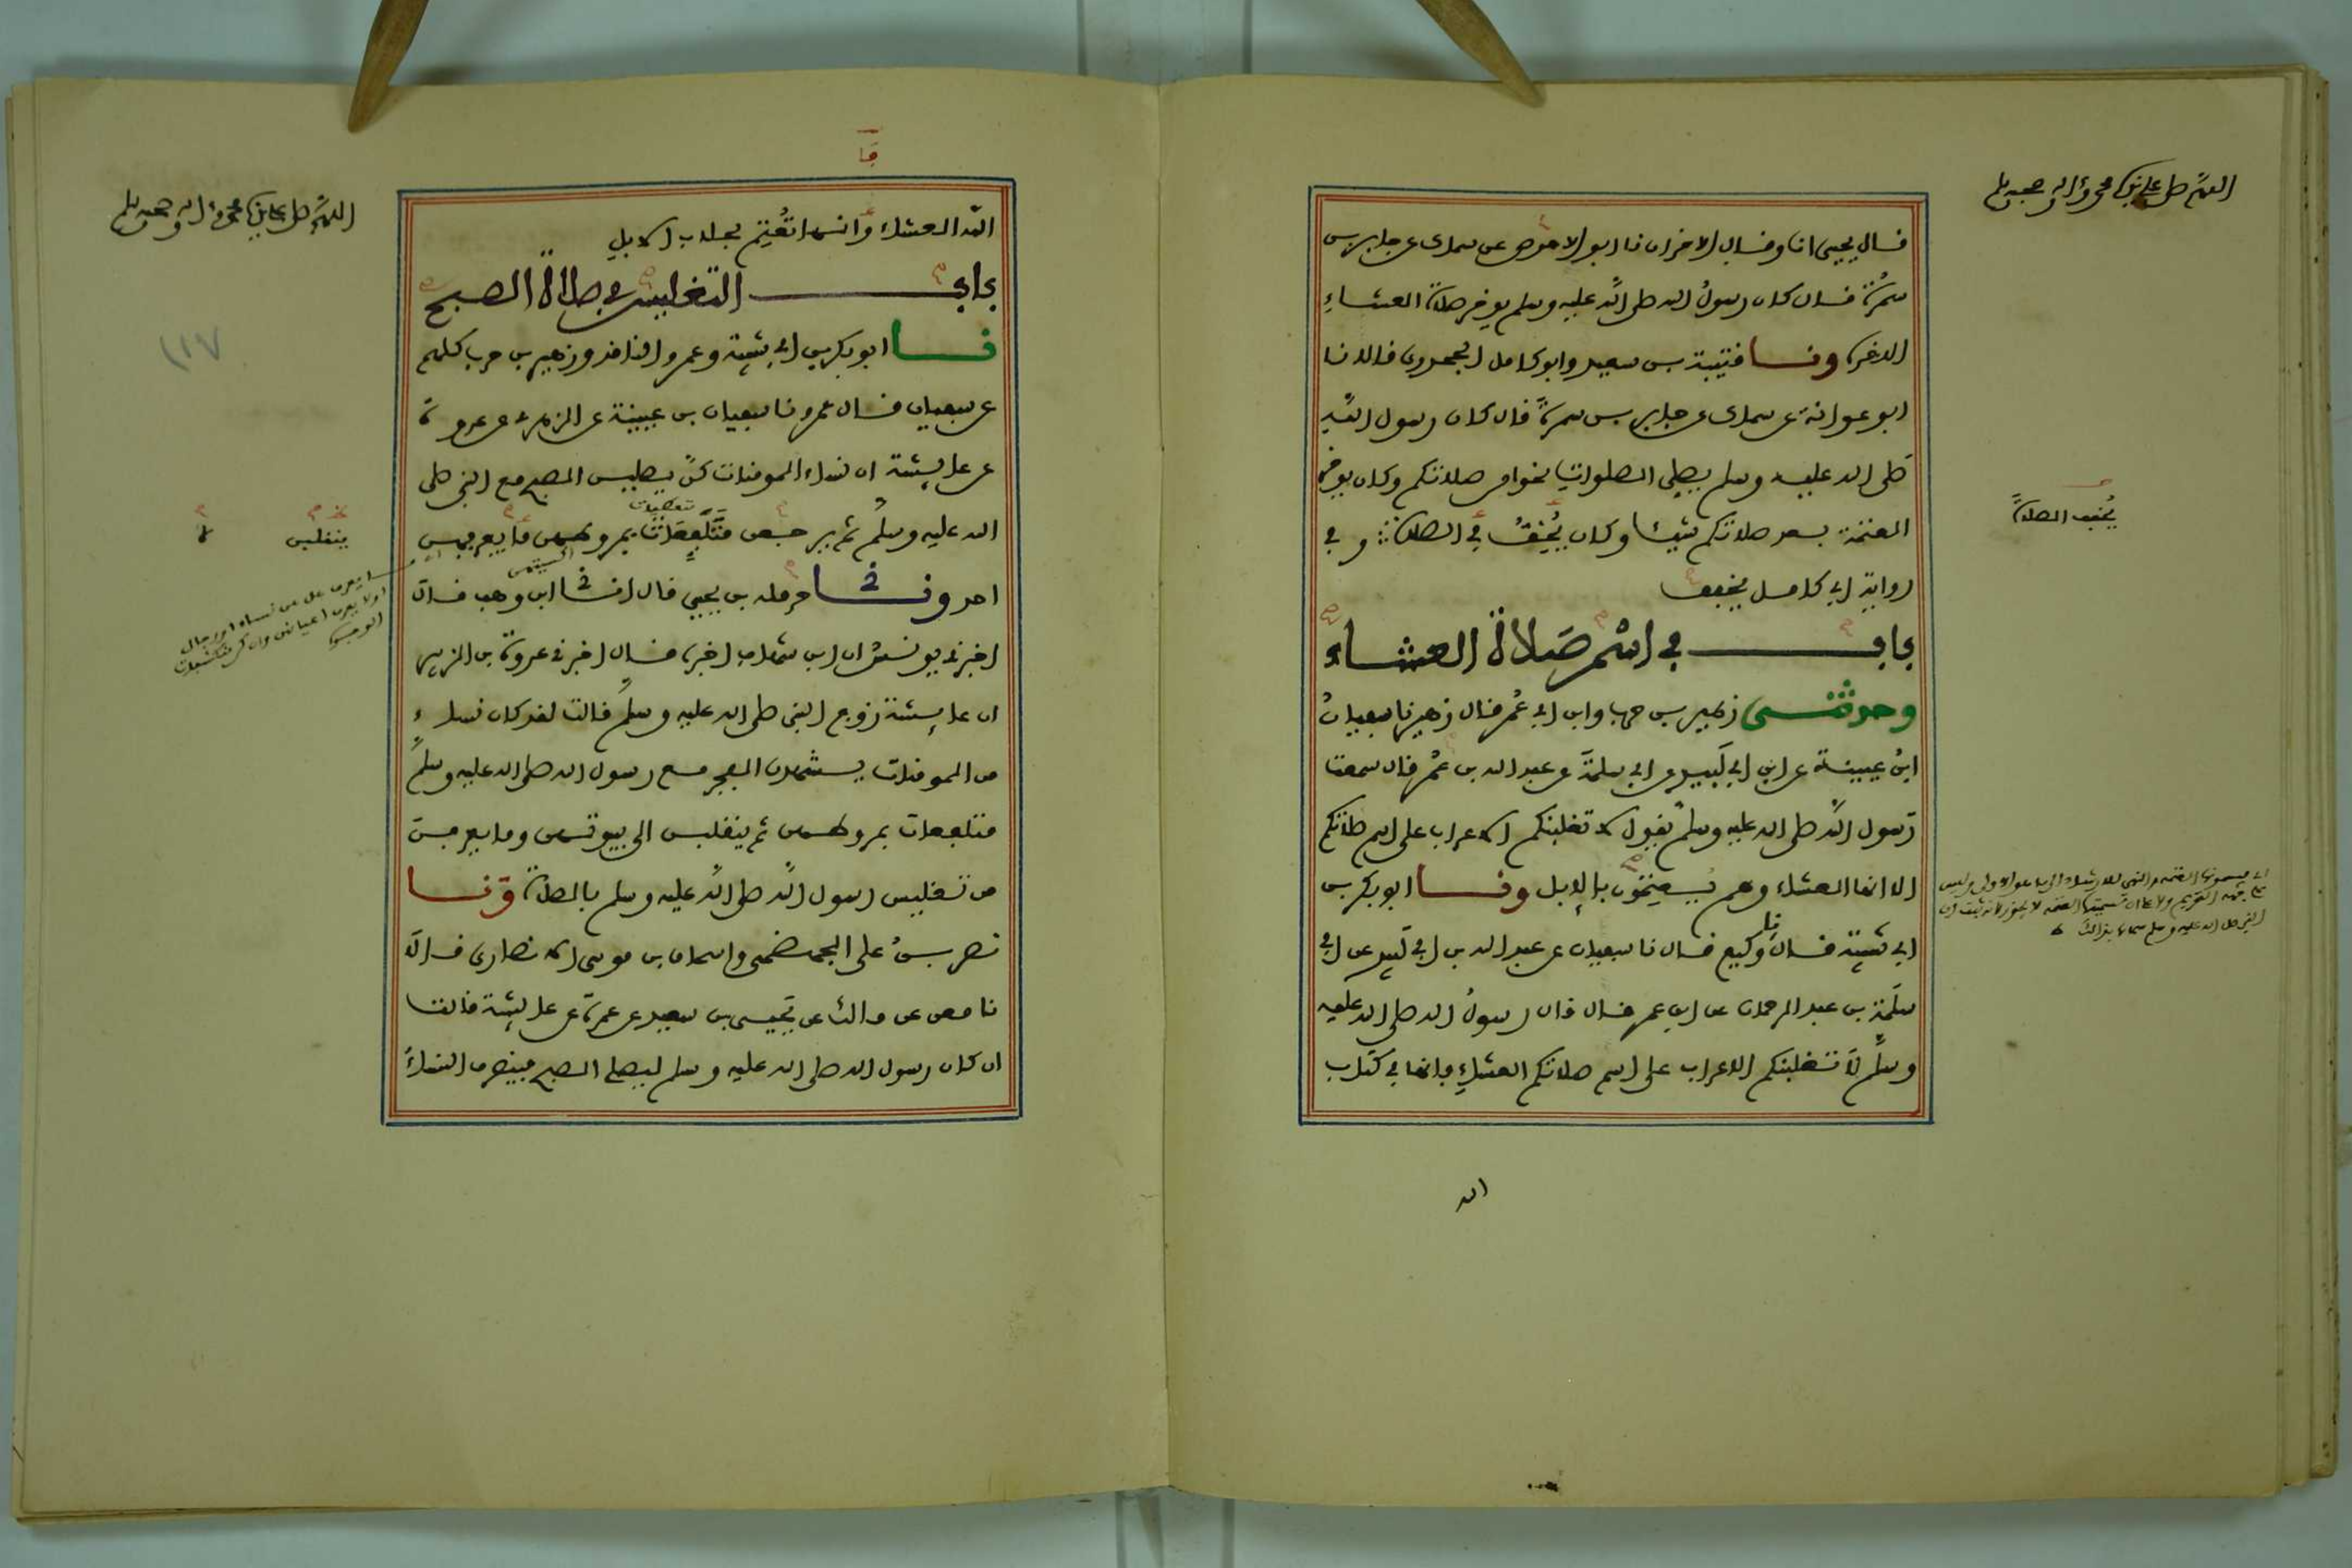 اللهم صل على نبينا محمد وآله وصحبه وسلم
قال يحيى انا وقال الاخران نا ابو الاحوص عن سماك عن جابر بن
سمرة قال كان رسول الله صلى الله عليه وسلم يوخر صلاة العشاء
الاخرة ونا قتيبة بن سعيد وابو كامل الجحدري قالا نا
ابو عوانة عن سماك عن جابر بن سمرة قال كان رسول الله
صلى الله عليه وسلم يصلي الصلوات نحوا من صلاتكم وكان يوخر
العتمة بعد صلاتكم شيئا وكان يُخِفُّ في الصلاة وفي
يُخفف الصلاةَ
رواية ابي كامل يخفف
باب في اسْمِ صَلاة العشاء
وحدثنى زهير بن حرب وابن ابي عُمر قال زهير نا سفيانُ
ابنُ عيينة عن ابن ابي لَبيد عن ابي سلمةَ عن عبد الله بن عُمر قال سمعت
رَسول الله صلى الله عليه وسلم يقول لا تغلبنكم الاعراب على اسم صلاتكم
الا انها العشاء وهم يُعتِمُون بالإبل ونا ابو بكر بن
ابي شيبة قال نا وكيع قال نا سفيان عن عبد الله بن ابي لَبيد عن ابي
سلَمة بن عبد الرحمان عن ابن عمر قال قال رسولُ الله صلى الله عليه
وسلم لا تغلبنكم الاعراب على اسم صلاتكم العشاءِ فانها في كتاب
الله
اللهم صل على نبينا محمد وآله وصحبه وسلم
الله العشاء وانها تُعْتِم بحلاب الابلِ
باب التغليس في صلاة الصبح
نا ابو بكر بن ابي شيبة وعمرو الناقد وزهير بن حرب كلهم
عن سفيان قال عمرو نا سفيان بن عيينة عن الزهري عن عروة
عن عايشة ان نساء المومنات كنّ يصلين الصبح مع النبي صلى
الله عليه وسلم ثم يرجعن مُتَلَفِّعات بمروطهن ما يعرفهن
ينقلبن
احد ونا حرملة بن يحيى قال انا ابن وهب قال
اخبرني يونسُ ان ابن شهاب اخبره قال اخبرني عروة بن الزبير
ان عايشة زوج النبي صلى الله عليه وسلم قالت لقد كان نساء
من المومنات يشهدن الفجر مع رسول الله صلى الله عليه وسلم
متلفعات بمروطهن ثم ينقلبن الى بيوتهن وما يعرفن
من تغليس رسول الله صلى الله عليه وسلم بالصلاة ونا
نصر بنُ علي الجهضمي واسحاق بن موسى الانصاري قالا
نا معن عن مالك عن يَحيى بن سعيد عن عمرةَ عن عايشة قالت
ان كان رسول الله صلى الله عليه وسلم ليصلي الصبح فينصرف النساءُ
١١٧